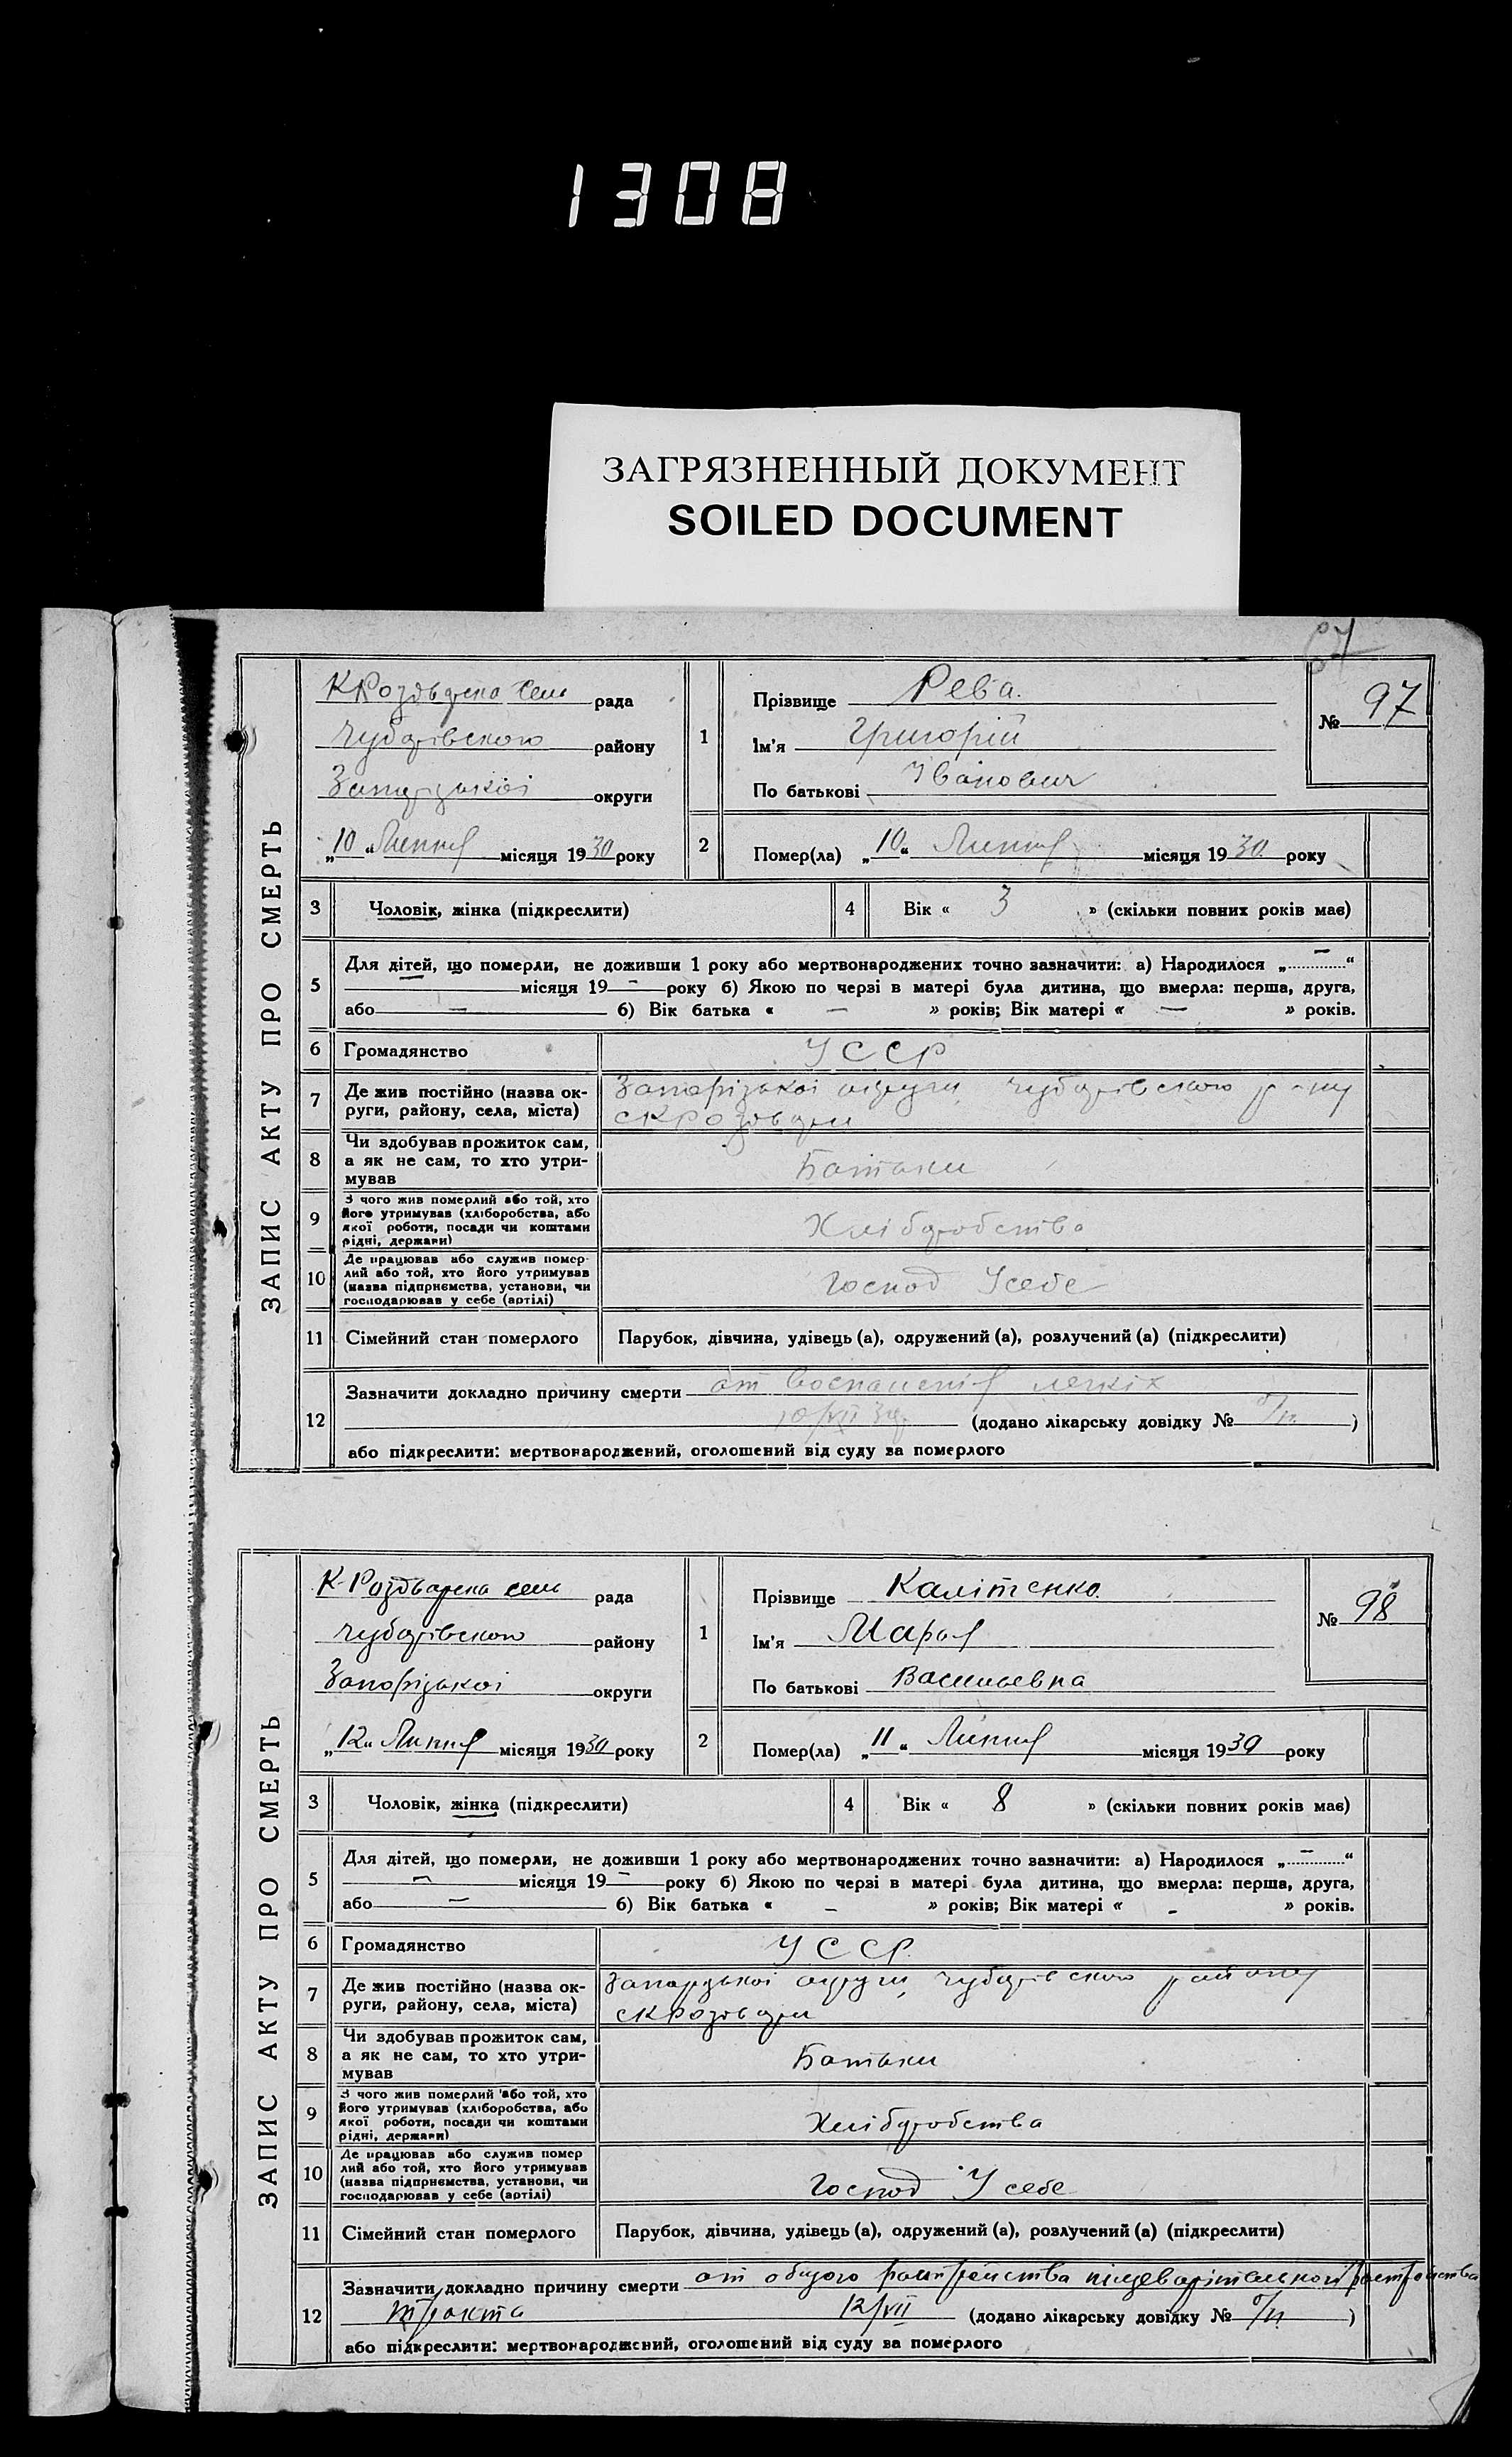 1308
ЗАГРЯЗНЕННЫЙ ДОКУМЕНТ
SOILED DOCUMENT
67
ЗАПИС АКТУ ПРО СМЕРТЬ
рада
Чубарівського району
Запорізькоі округи
„10“ Липня місяця 1930 року
1
Прізвище Рева.
Ім'я Григорій
По батькові Іванович
№ 97
2
Помер(ла) „10“ Липня місяця 1930 року
3 Чоловік, жінка (підкреслити)
4 Вік « 3 » (скільки повних років має)
5
Для дітей, що померли, не доживши 1 року або мертвонароджених точно зазначити: а) Народилося „ — “
— місяця 19 — року б) Якою по черзі в матері була дитина, що вмерла: перша, друга,
або — б) Вік батька « — » років; Вік матері « — » років.
6 Громадянство УССР
7 Де жив постійно (назва ок-
руги, району, села, міста)
Запорізькоі округи, Чубарівського р-ну
8 Чи здобував прожиток сам,
а як не сам, то хто утри-
мував
Батьки
9 З чого жив померлий або той, хто
його утримував (хліборобства, або
якої роботи, посади чи коштами
рідні, держави)
Хліборобства
10 Де працював або служив помер-
лий або той, хто його утримував
(назва підприємства, установи, чи
господарював у себе (артілі)
Господ Усебе
11 Сімейний стан померлого Парубок, дівчина, удівець (а), одружений (а), розлучений (а) (підкреслити)
12
Зазначити докладно причину смерти от воспаленія легкіх
10/VII 30р. (додано лікарську довідку № б/н )
або підкреслити: мертвонароджений, оголошений від суду за померлого
ЗАПИС АКТУ ПРО СМЕРТЬ
рада
Чубарівського району
Запорізькоі округи
„12“ Липня місяця 1930 року
1
Прізвище Калітенко.
Ім'я Марья
По батькові Васильевна
№ 98
2
Помер(ла) „11“ Липня місяця 1930 року
3 Чоловік, жінка (підкреслити)
4 Вік « 8 » (скільки повних років має)
5
Для дітей, що померли, не доживши 1 року або мертвонароджених точно зазначити: а) Народилося „ — “
— місяця 19 — року б) Якою по черзі в матері була дитина, що вмерла: перша, друга,
або — б) Вік батька « — » років; Вік матері « - » років.
6 Громадянство УССР.
7 Де жив постійно (назва ок-
руги, району, села, міста)
Запорізькоі округи, Чубарівского району
8 Чи здобував прожиток сам,
а як не сам, то хто утри-
мував
Батьки
9 З чого жив померлий або той, хто
його утримував (хліборобства, або
якої роботи, посади чи коштами
рідні, держави)
Хліборобства
10 Де працював або служив помер
лий або той, хто його утримував
(назва підприємства, установи, чи
господарював у себе (артілі)
Господ Усебе
11 Сімейний стан померлого Парубок, дівчина, удівець (а), одружений (а), розлучений (а) (підкреслити)
12
Зазначити докладно причину смерти от общого
тракта 12/VII (додано лікарську довідку № б/н )
або підкреслити: мертвонароджений, оголошений від суду за померлого